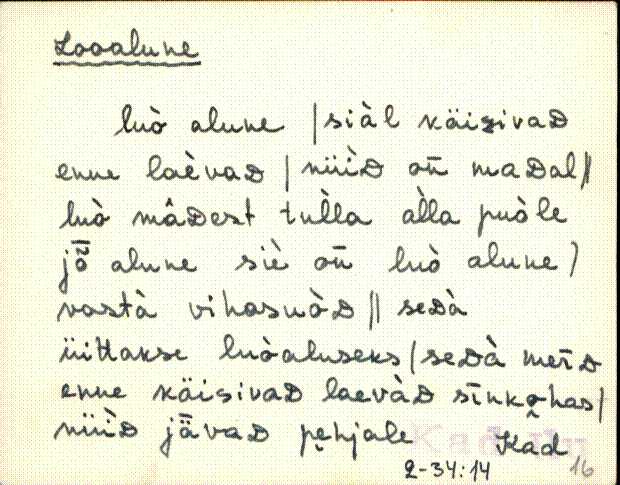 Looalune
luò alune | siàl käisivaD
enne laèvaD | nüìD on̄ maDal ||
luò mâDest tul̀la al̀la puòle
jȭ alune siè on̄ luò alune /
vastà vihasuòD || seDà
üittakse luòaluseks | seDà merD
enne käisivaD laevàD sīnkohas /
nüìD jǟvaD pehjale Kad
2-34:14 16